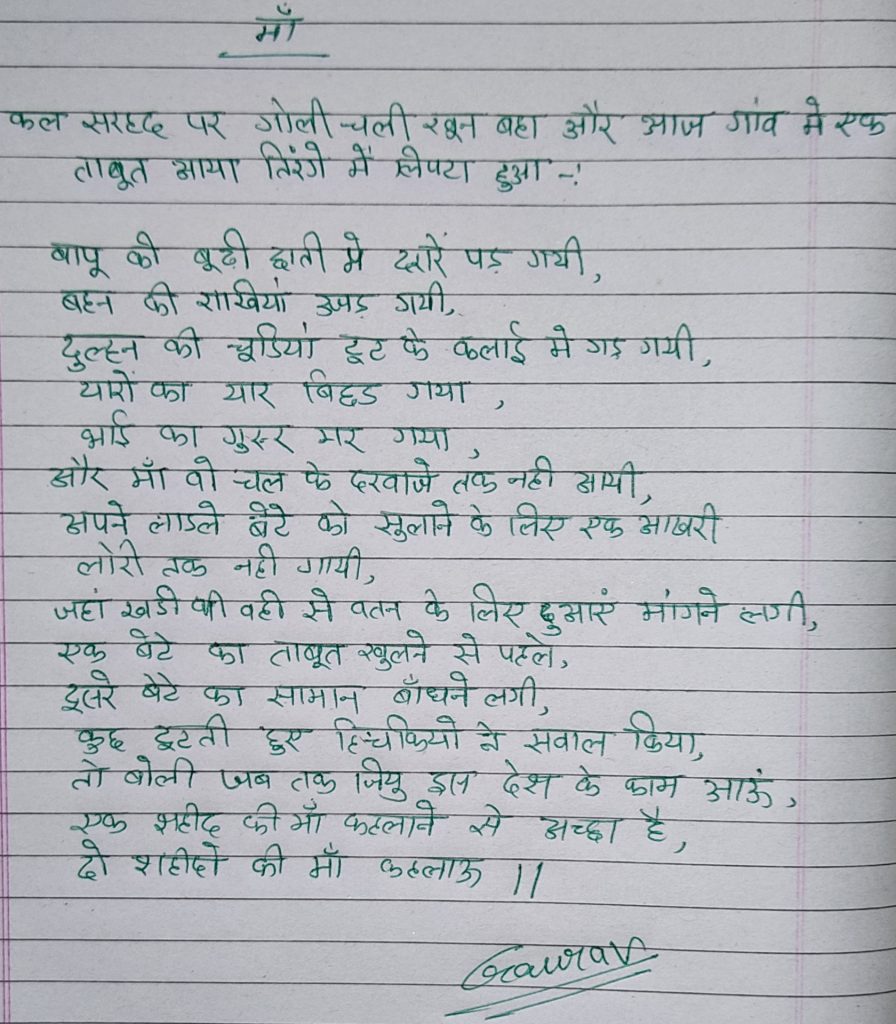 माँ
कल सरहद पर गोली चली खून बहा और आज गांव मे एक
ताबूत आया तिरंगे में लिपटा हुआ -!
बापू की बूढी छाती मे दरारें पड़ गयी,
बहन की राखियां उजड़ गयी,
दुल्हन की चूडियां टूट के कलाई मे गड़ गयी,
यारों का यार बिछड गया ,
भाई का गुरुर मर गया ,
और माँ वो चल के दरवाजे तक नही आयी,
अपने लाडले बेटे को सुलाने के लिए एक आखरी
लोरी तक नही गायी,
जहां खडी थी वही से वतन के लिए दुआएं मांगने लगी,
एक बेटे का ताबूत खुलने से पहले,
दूसरे बेटे का सामान बाँधने लगी,
कुछ टूटती हुए हिचकियो ने सवाल किया,
तो बोली जब तक जियु इस देश के काम आऊं,
एक शहीद की माँ कहलाने से अच्छा है,
दो शहीदो की माँ कहलाऊ ||
Gaurav